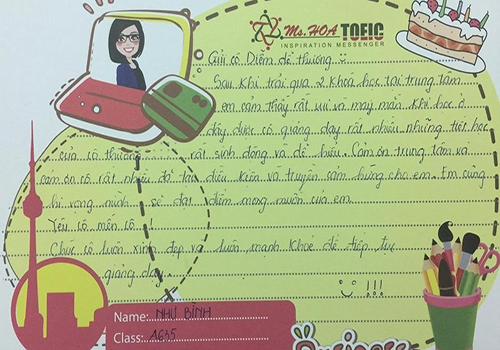 Ms. HOA TOEIC
INSPIRATION MESSENGER
Gửi cô Diễm dễ thương
Sau khi trải qua 2 khoá học tại trung tâm
em cảm thấy rất vui và may mắn khi học ở
đây được cô giảng dạy rất nhiều những tiết học
của cô thường rất sinh động và dễ hiểu. Cảm ơn trung tâm và
cảm ơn cô rất nhiều đã tạo điều kiện và truyền cảm hứng cho em. Em cũng
hi vọng mình sẽ đạt điểm mong muốn của em.
Yêu cô mến cô
Chúc cô luôn xinh đẹp và luôn mạnh khoẻ để tiếp tục
giảng dạy.
!!!
Name: NHƯ BÌNH
Class: A635